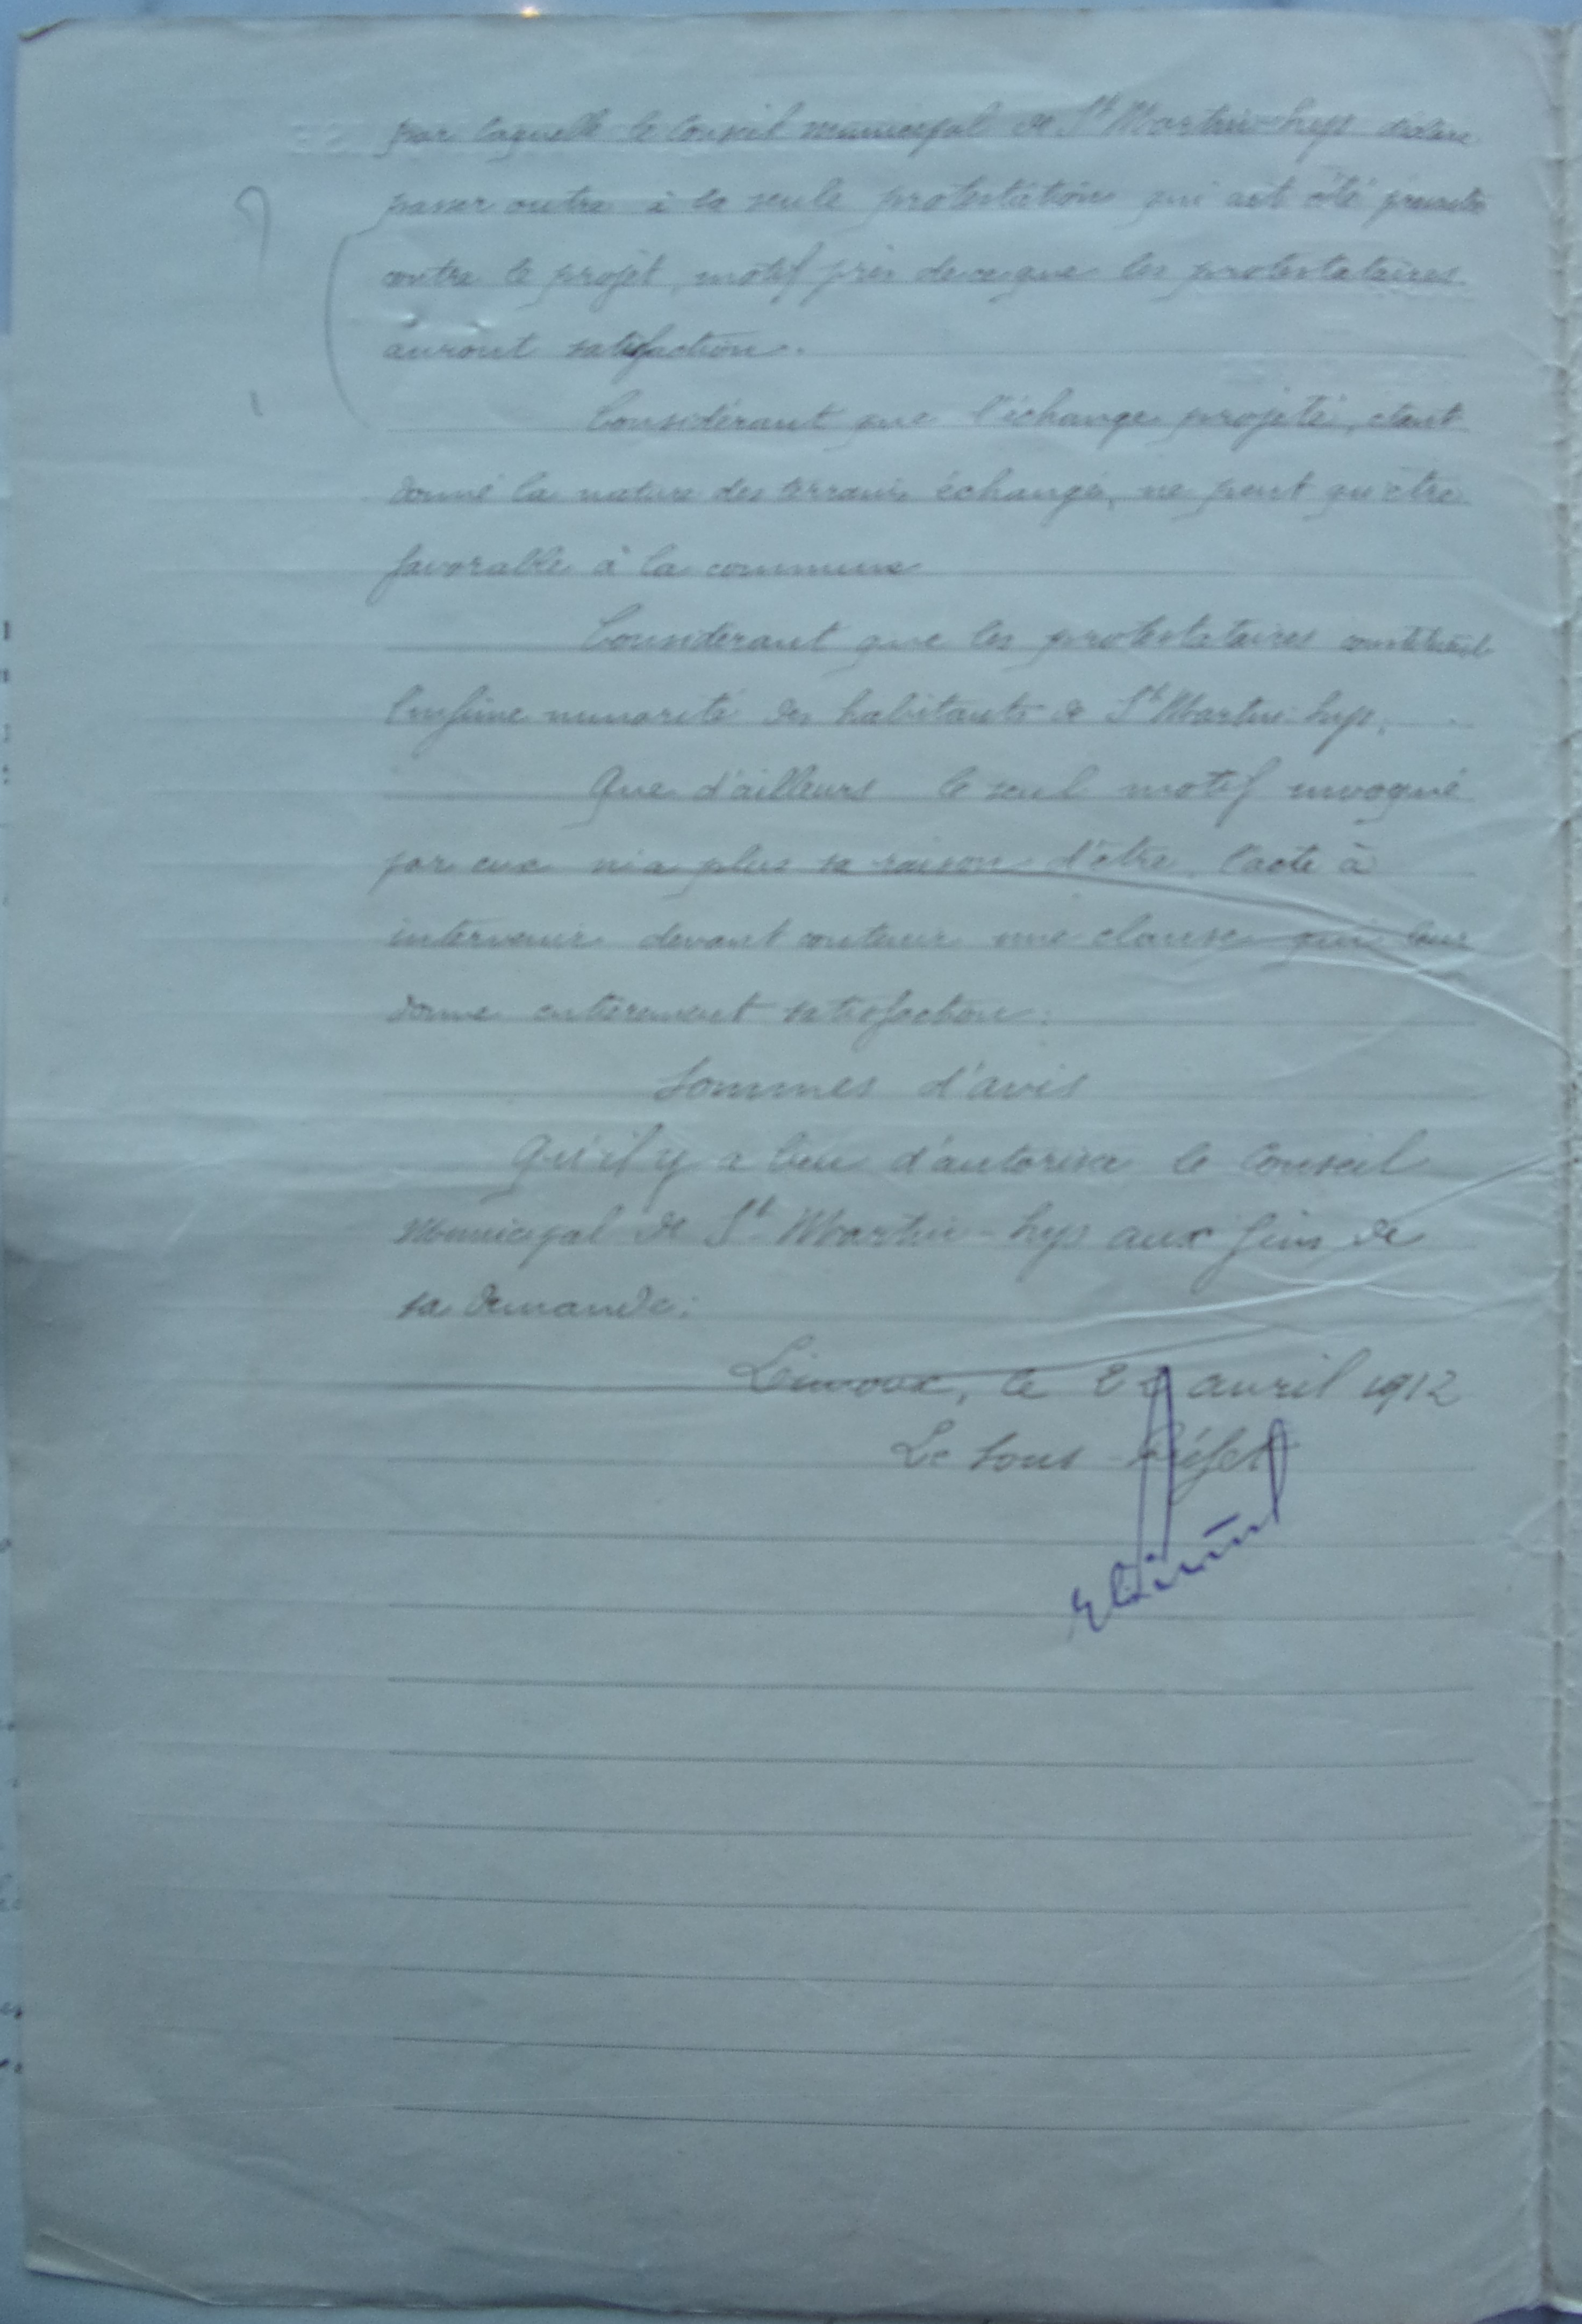 par laquelle le Conseil municipal de St Martin-Lys déclare
passer outre à la seule protestation qui ait été présentée
contre le projet, motif pris de ce que les protestataires
auront satisfaction.
Considérant que l'échange projeté, étant
donné la nature des terrains échangés, ne peut qu'être
favorable à la commune
Considérant que les protestataires constituent
l'infime minorité des habitants de St Martin-Lys.
Que d'ailleurs le seul motif invoqué
par eux n'a plus sa raison d'être, l'acte à
intervenir devant contenir une clause qui leur
donne entièrement satisfaction.
Sommes d'avis
Qu'il y a lieu d'autoriser le Conseil
Municipal de St Martin-Lys aux fins de
sa demande.
Limoux, le avril 1912
Le Sous-Préfet